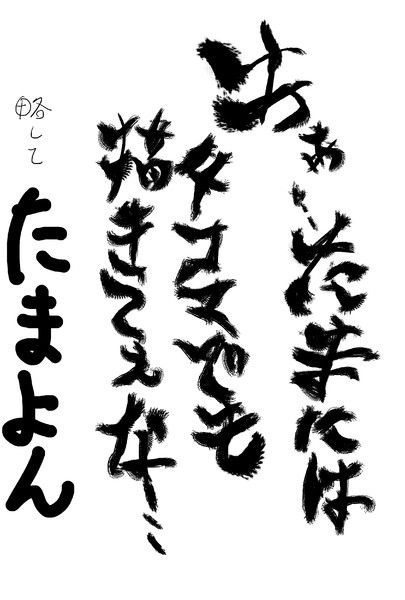 あぁ…たまには
4コマでも
描きてぇな…
略して
たまよん